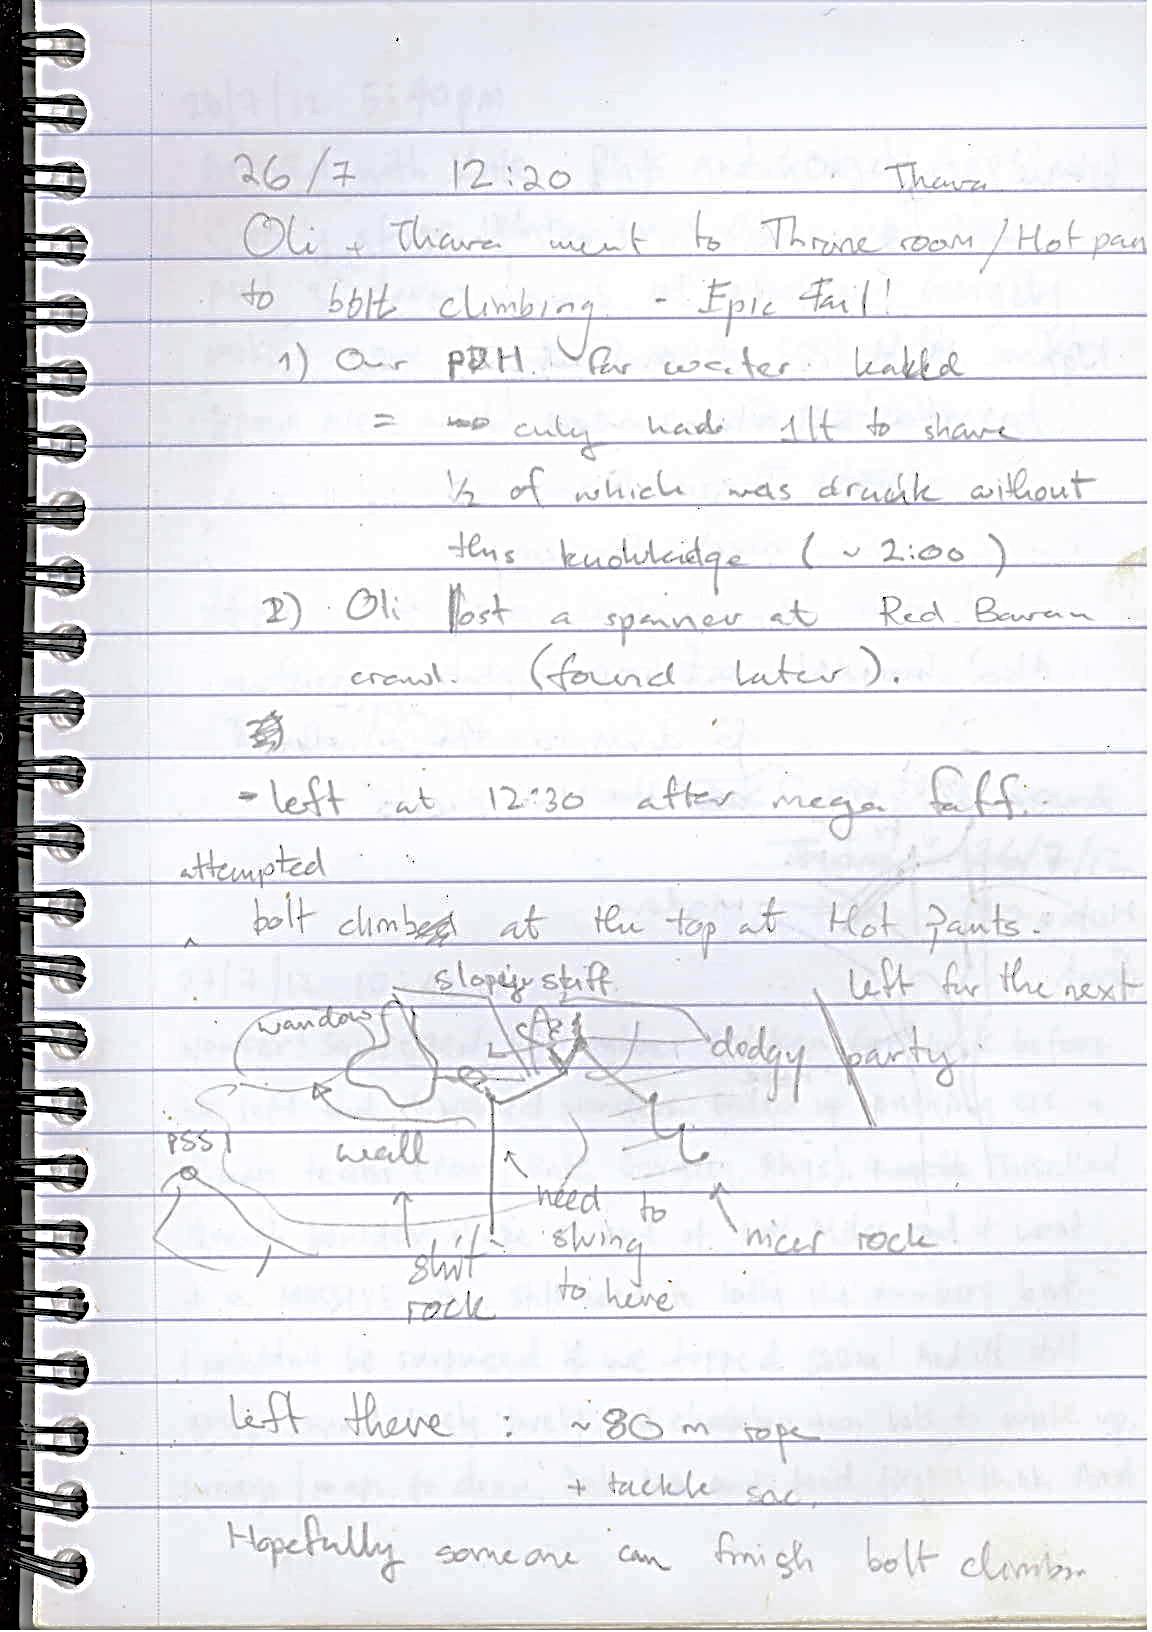 26/7 12:20 Thara
Oli + Thara went to Throne room / Hot pan
to bolt climbing - Epic Fail!
1) Our for water leaked
= only had 1lt to share
1/2 of which was drunk without
this knowledge ( ~ 2:00 )
2) Oli lost a spanner at Red Baron
crawl. (found later).
- left at 12:30 after mega faff.
attempted
bolt climbed at the top at Hot Pants.
slopey stuff left for the next
window dodgy party
PSS1 wall
need to
shit swing nicer rock
rock to here
left there : ~ 80 m rope
+ tackle sac.
Hopefully someone can finish bolt climbin